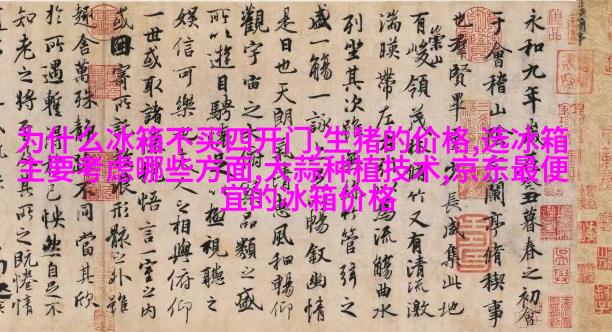 为什么冰箱不买四开门,生猪的价格,选冰箱
主要考虑哪些方面,大蒜种植技术,京东最便
宜的冰箱价格
永和九年丑暮春之初會
于會稽山蘭亭脩稧事
也群賢畢長咸集此地
有崇山峻領茂林脩竹又有清流激
湍暎帶左右為流觴曲水
列坐其次竹管弦之
盛一觴一詠暢敘幽情
是日也天朗氣清惠風和暢仰
觀宇宙之品類之盛
所以遊目騁極視聽之
娛信可樂人之相與俯仰
一世或取諸悟言一室之內
或因寄所形骸之外雖
趣舍萬殊靜不同當其欣
於所遇暫得怏然自足不
知老之將至既惓情